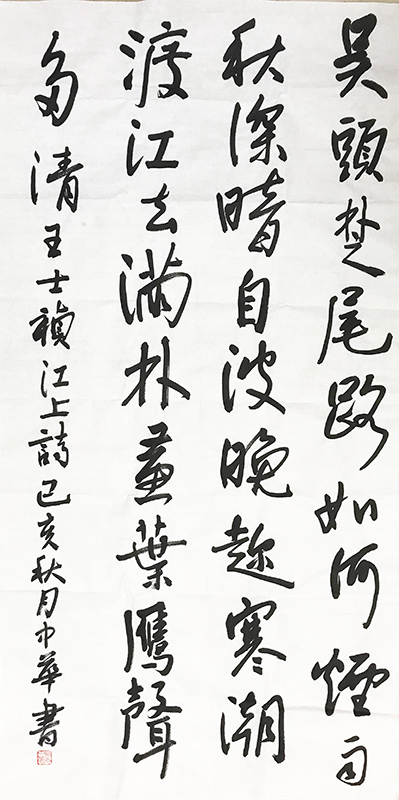 吳頭楚尾路如何煙雨
秋深暗白波晚趁寒潮
渡江去滿林黃葉鴈聲
多 清王士禎江上詩己亥秋月中華書